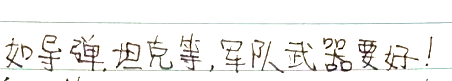 如导弹,坦克等,军队武器要好!